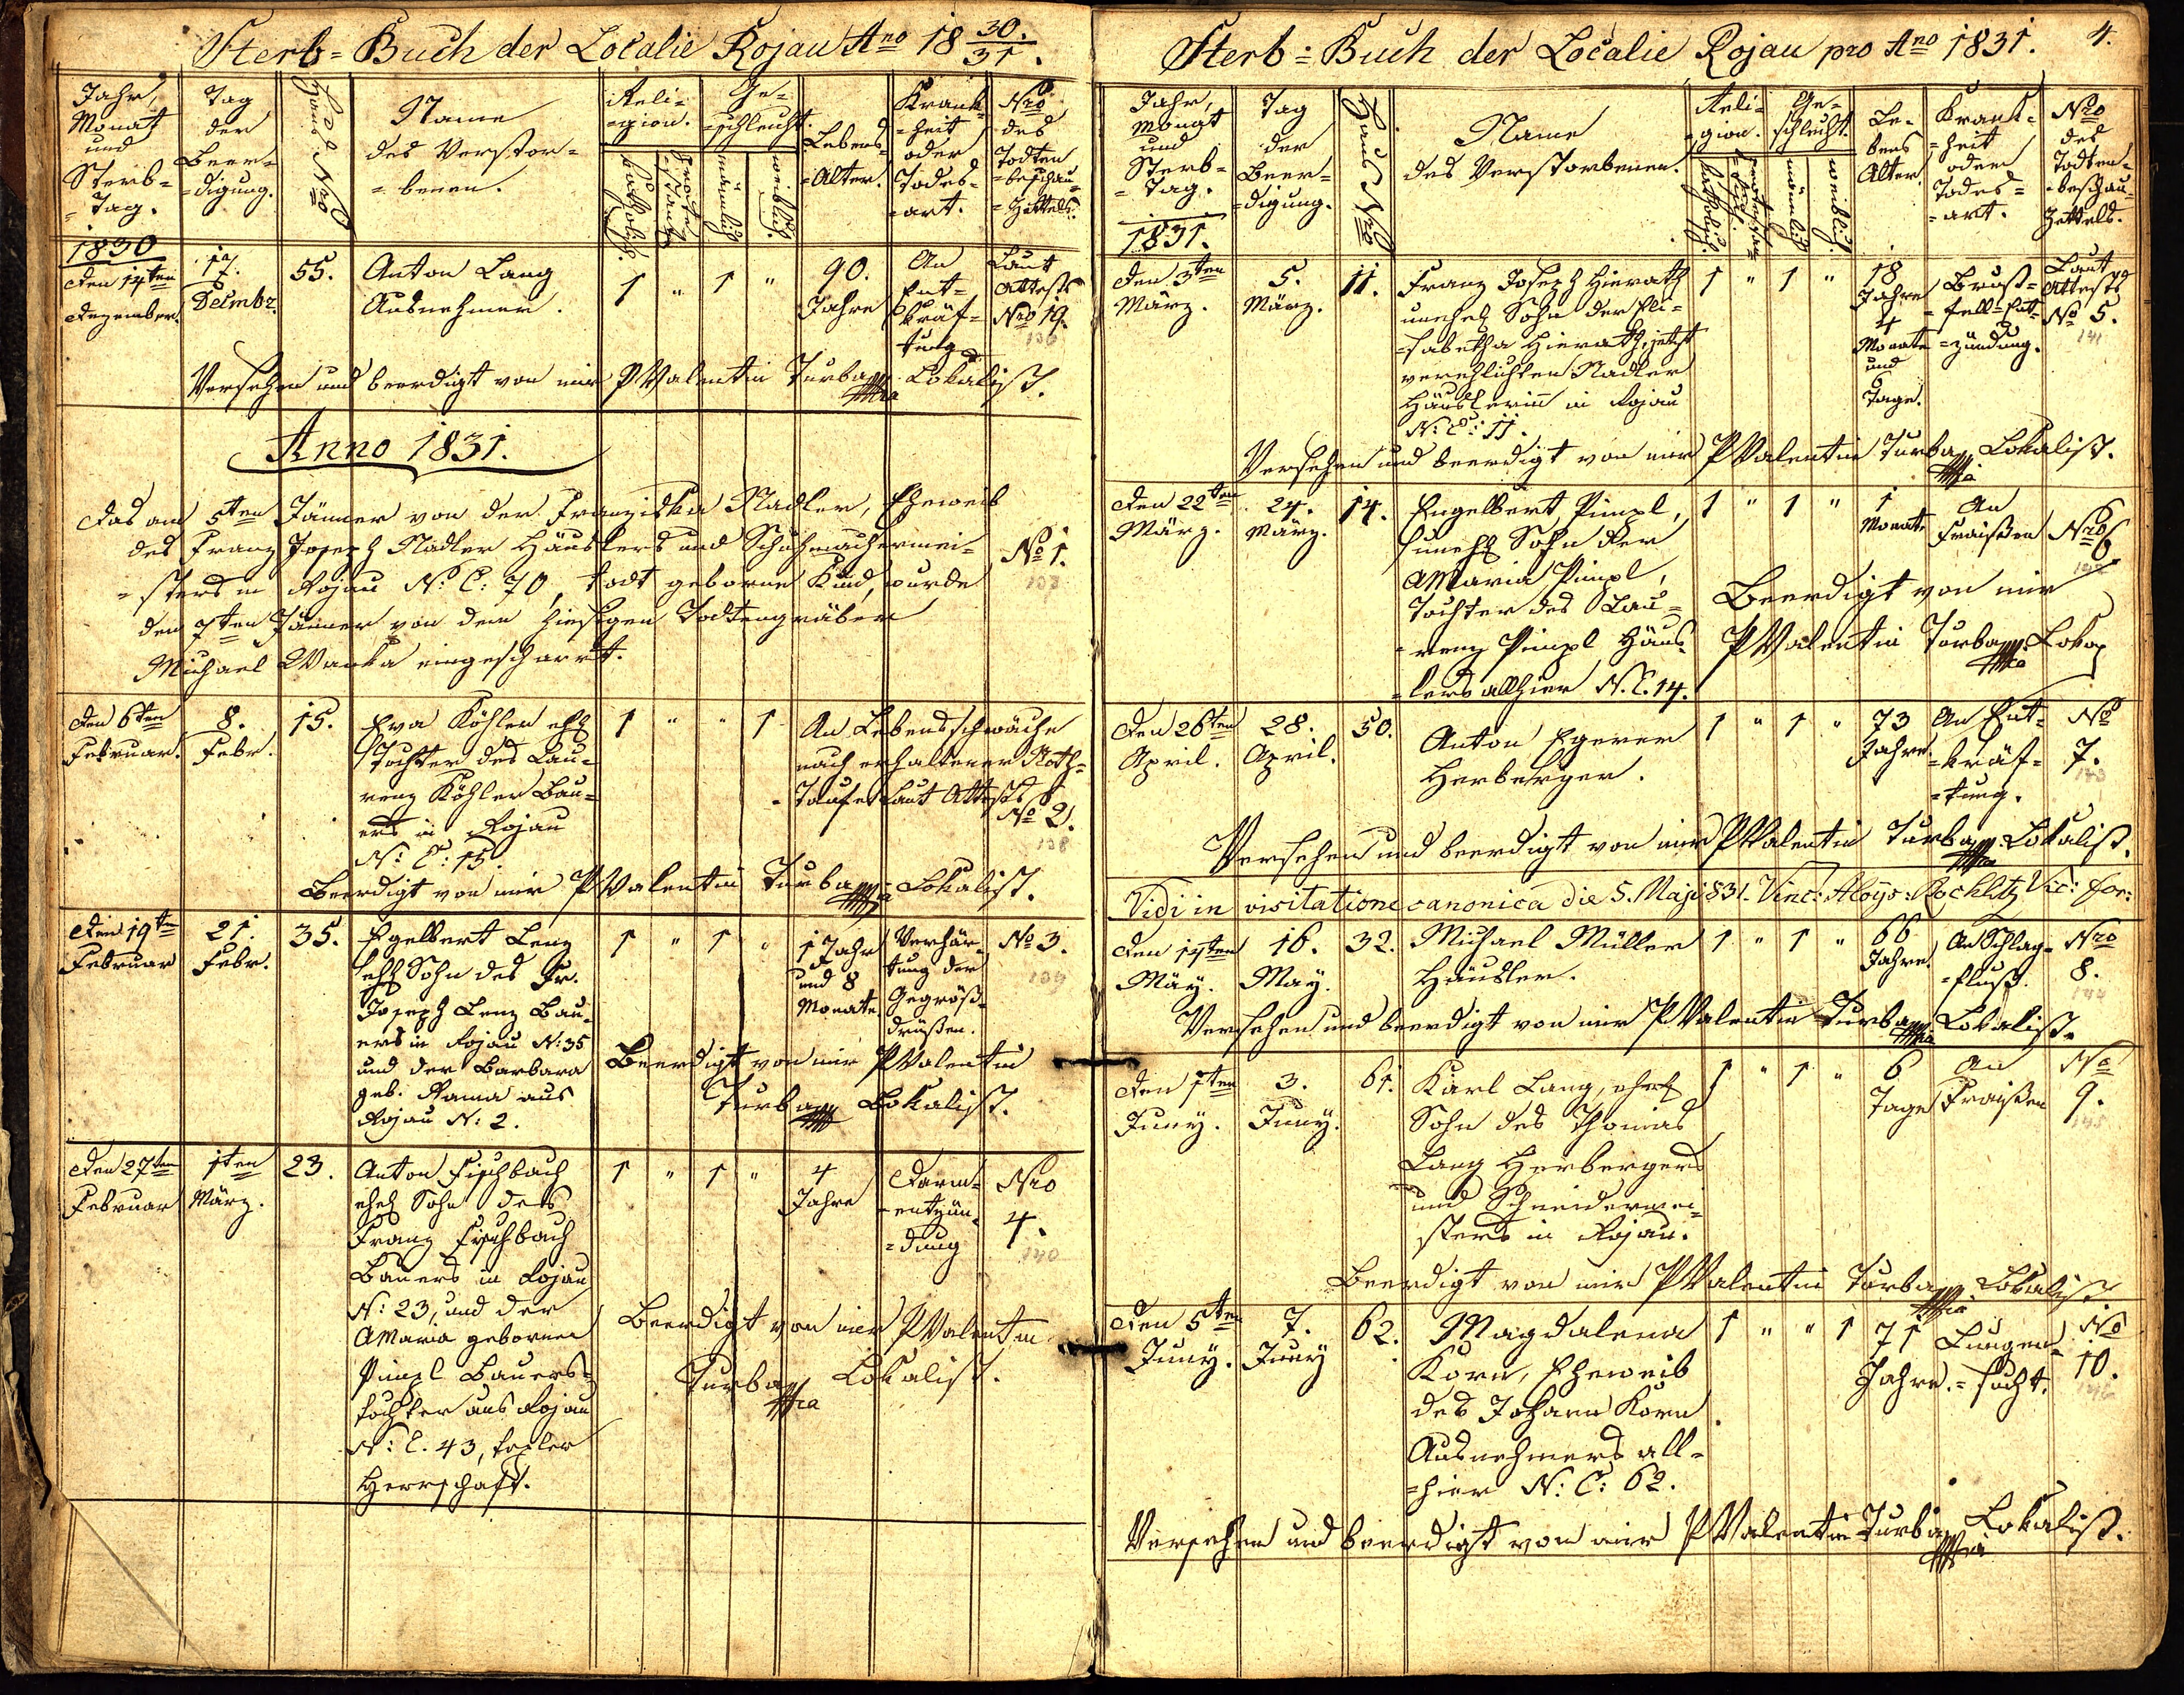 Sterb=Buch der Localie Rojau Ano 18 30./31.
Jahr, Monat und Sterb= =Tag.
Tag der Beer= =digung.
Haus Nro
Name des Verstor= =benen.
Reli= =gion.
katholisch.
protestantisch
Ge= =schlecht.
männlich
weiblich.
Lebens= =Alter.
Krank= =heit oder Todes= =art.
Nro des Todten =beschau= =Zettels.
1830
den 14ten
Dezember.
17.
Decmbr.
55.
Anton Lang
Ausnehmer.
1 " 1 "
90.
Jahre
An
Ent=
kräf=
tung
Laut
Attests
Nro 19.
136
Versehen und beerdigt von mir P Valentin Turba mpia Lokalist.
Anno 1831.
Das am 5ten Jänner von der Franziska Nadler, Eheweib
des Franz Joseph Nadler Häuslers und Schuhmachermei=
=sters in Rojau N: C: 70, todt geborne Kind, wurde
den 7ten Jänner von dem hiesigen Todtengräber
Michael Wanka eingescharrt.
No 1.
den 6ten
Februar.
8.
Febr.
15.
Eva Köhler ehel
Tochter des Lau=
renz Köhler Bau=
ers in Rojau
N: C: 15.
1 " " 1
An Lebensschwäche
nach erhaltener Noth=
=Taufe Laut Attests
No 2.
138
Beerdigt von mir P Valentin Turba mpia Lokalist.
Den 19ten
Februar
21.
Febr.
35.
Egelbert Lenz
ehel Sohn des Fr.
Joseph Lenz Bau=
ers in Rojau N: 35
und der Barbara
geb. Rama aus
Rojau N: 2.
1 " 1 "
1 Jahr
und 8
Monate
Verhär=
tung der
Gegröß=
drüßen.
No 3.
139
Beerdigt von mir P Valentin
Turba mp Lokalist.
Den 27ten
Februar
1ten
März.
23.
Anton Fischbach
ehel Sohn des
Franz Fischbach
Bauers in Rojau
N: 23, und der
AMaria geborner
Pimpl Bauers=
tochter aus Rojau
N: C. 43, tepler
Herrschaft.
1 " 1 "
4
Jahre
Darm=
=entzün=
=dung
Nro
4.
140
Beerdigt von mir P Valentin
Turba mpia Lokalist.
4.
Sterb=Buch der Localie Rojau pro Ano 1831.
Jahr, Monat und Sterb= =Tag.
Tag der Beer= =digung.
Haus Nro
Name des Verstorbenen.
Reli= =gion.
katholisch.
protestan= =tisch.
Ge= schlecht.
männlich
weiblich.
Le= bens Alter.
Krank= =heit oder Todes= =art.
Nro des Todten= =beschau= Zettels.
1831.
den 3ten
März.
5.
März.
11.
Franz Joseph Hierath
unehel Sohn der Eli=
=sabetha Hierath, jetzt
verehlichten Nadler
Häuslerinn in Rojau
N: C: 11.
1 " 1 "
18
Jahre
4
Monate
und
6
Tage.
Brust=
=fell=Ent=
=zündung.
Laut
Attests
No 5.
141
Versehen und beerdigt von mir P Valentin Turba mpia Lokalist.
den 22ten
März.
24.
März.
14.
Engelbert Pimpl,
unehl Sohn der
AMaria Pimpl,
Tochter des Lau=
=renz Pimpl Häus=
=lers allhier N. C. 14.
1 " 1 "
1
Monat
An
Fraißen
Nro 6.
142
Beerdigt von mir
P Valentin Turba mpia Lokal
Den 26ten
April.
28.
April.
50.
Anton Egerer
Herberger.
1 " 1 "
73
Jahre
An Ent=
=kräf=
=tung.
No
7.
143
Versehen und beerdigt von mir P Valentin Turba mpia Lokalist.
Vidi in visitatione canonica die 5. Maji 831. Vinc: Aloys: Rochlitz Vic: for:
Den 14ten
May.
16.
May.
32.
Michael Müller
Häusler.
1 " 1 "
66
Jahre
An Schlag=
=fluß.
Nro
8.
144
Versehen und beerdigt von mir P Valentin Turba mpia Lokalist.
den 1ten
Juny.
3.
Juny.
61.
Karl Lang, ehel
Sohn des Thomas
Lang Herbergers
und Schneidermei=
sters in Rojau.
1 " 1 "
6
Tage
An
Fraißen
No
9.
145
Beerdigt von mir P Valentin Turba mpia Lokalist.
Den 5ten
Juny.
7.
Juny
62.
Magdalena
Korn, Eheweib
des Johann Korn
Ausnehmers all=
=hier N: C: 62.
1 " " 1
71
Jahre.
Lungen=
=sucht.
No
10.
146
Versehen und beerdigt von mir P Valentin Turba mpia Lokalist.